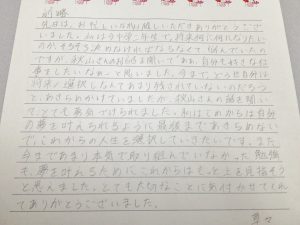 前略
先日は、お忙しい中お越しいただきありがとうござい
ました。私は今中学三年生で、将来何に何れなりたい
のか、そろそろ決めなければならなくて、悩んでいたの
ですが、秋山さんのお話を聞いて、ああ、自分も好きな仕
事をしたいなぁ、と思いました。今まで、どうせ自分は
将来の選択しなんてあまり残されていないのだろう
と、あきらめかけていましたが、秋山さんの話を聞い
てとても勇気づけられました。私はこれからは自分
の夢を叶えられるように最後まであきらめない
で、これからの人生を選択していきたいです。また、
今まであまり本気で取り組んでいなかった勉強
も、夢を叶えるためにこれからはもっと上を目指そう
と思えました。とても大切なことに気付かせてくれ
てありがとうございました。
草々